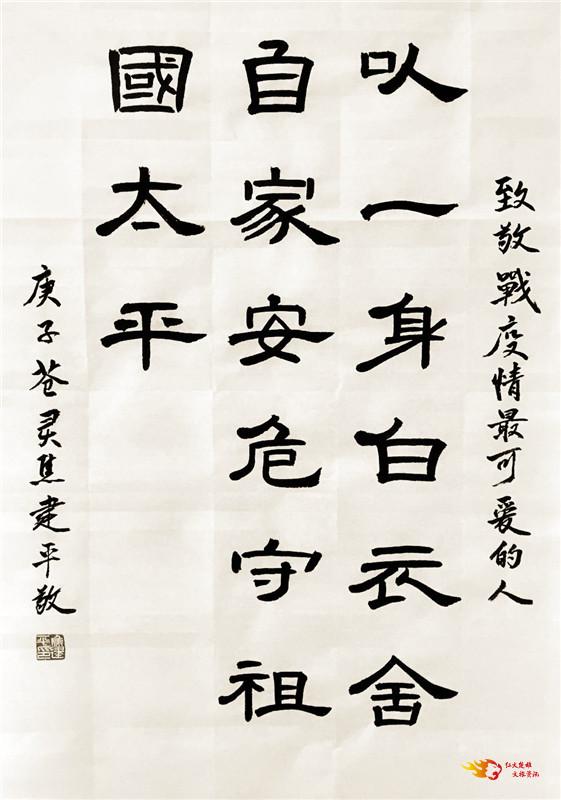 致敬戰疫情最可爱的人
以一身白衣舍
自家安危守祖
國太平
庚子苍灵焦建平敬
红火楚雄
文旅资讯